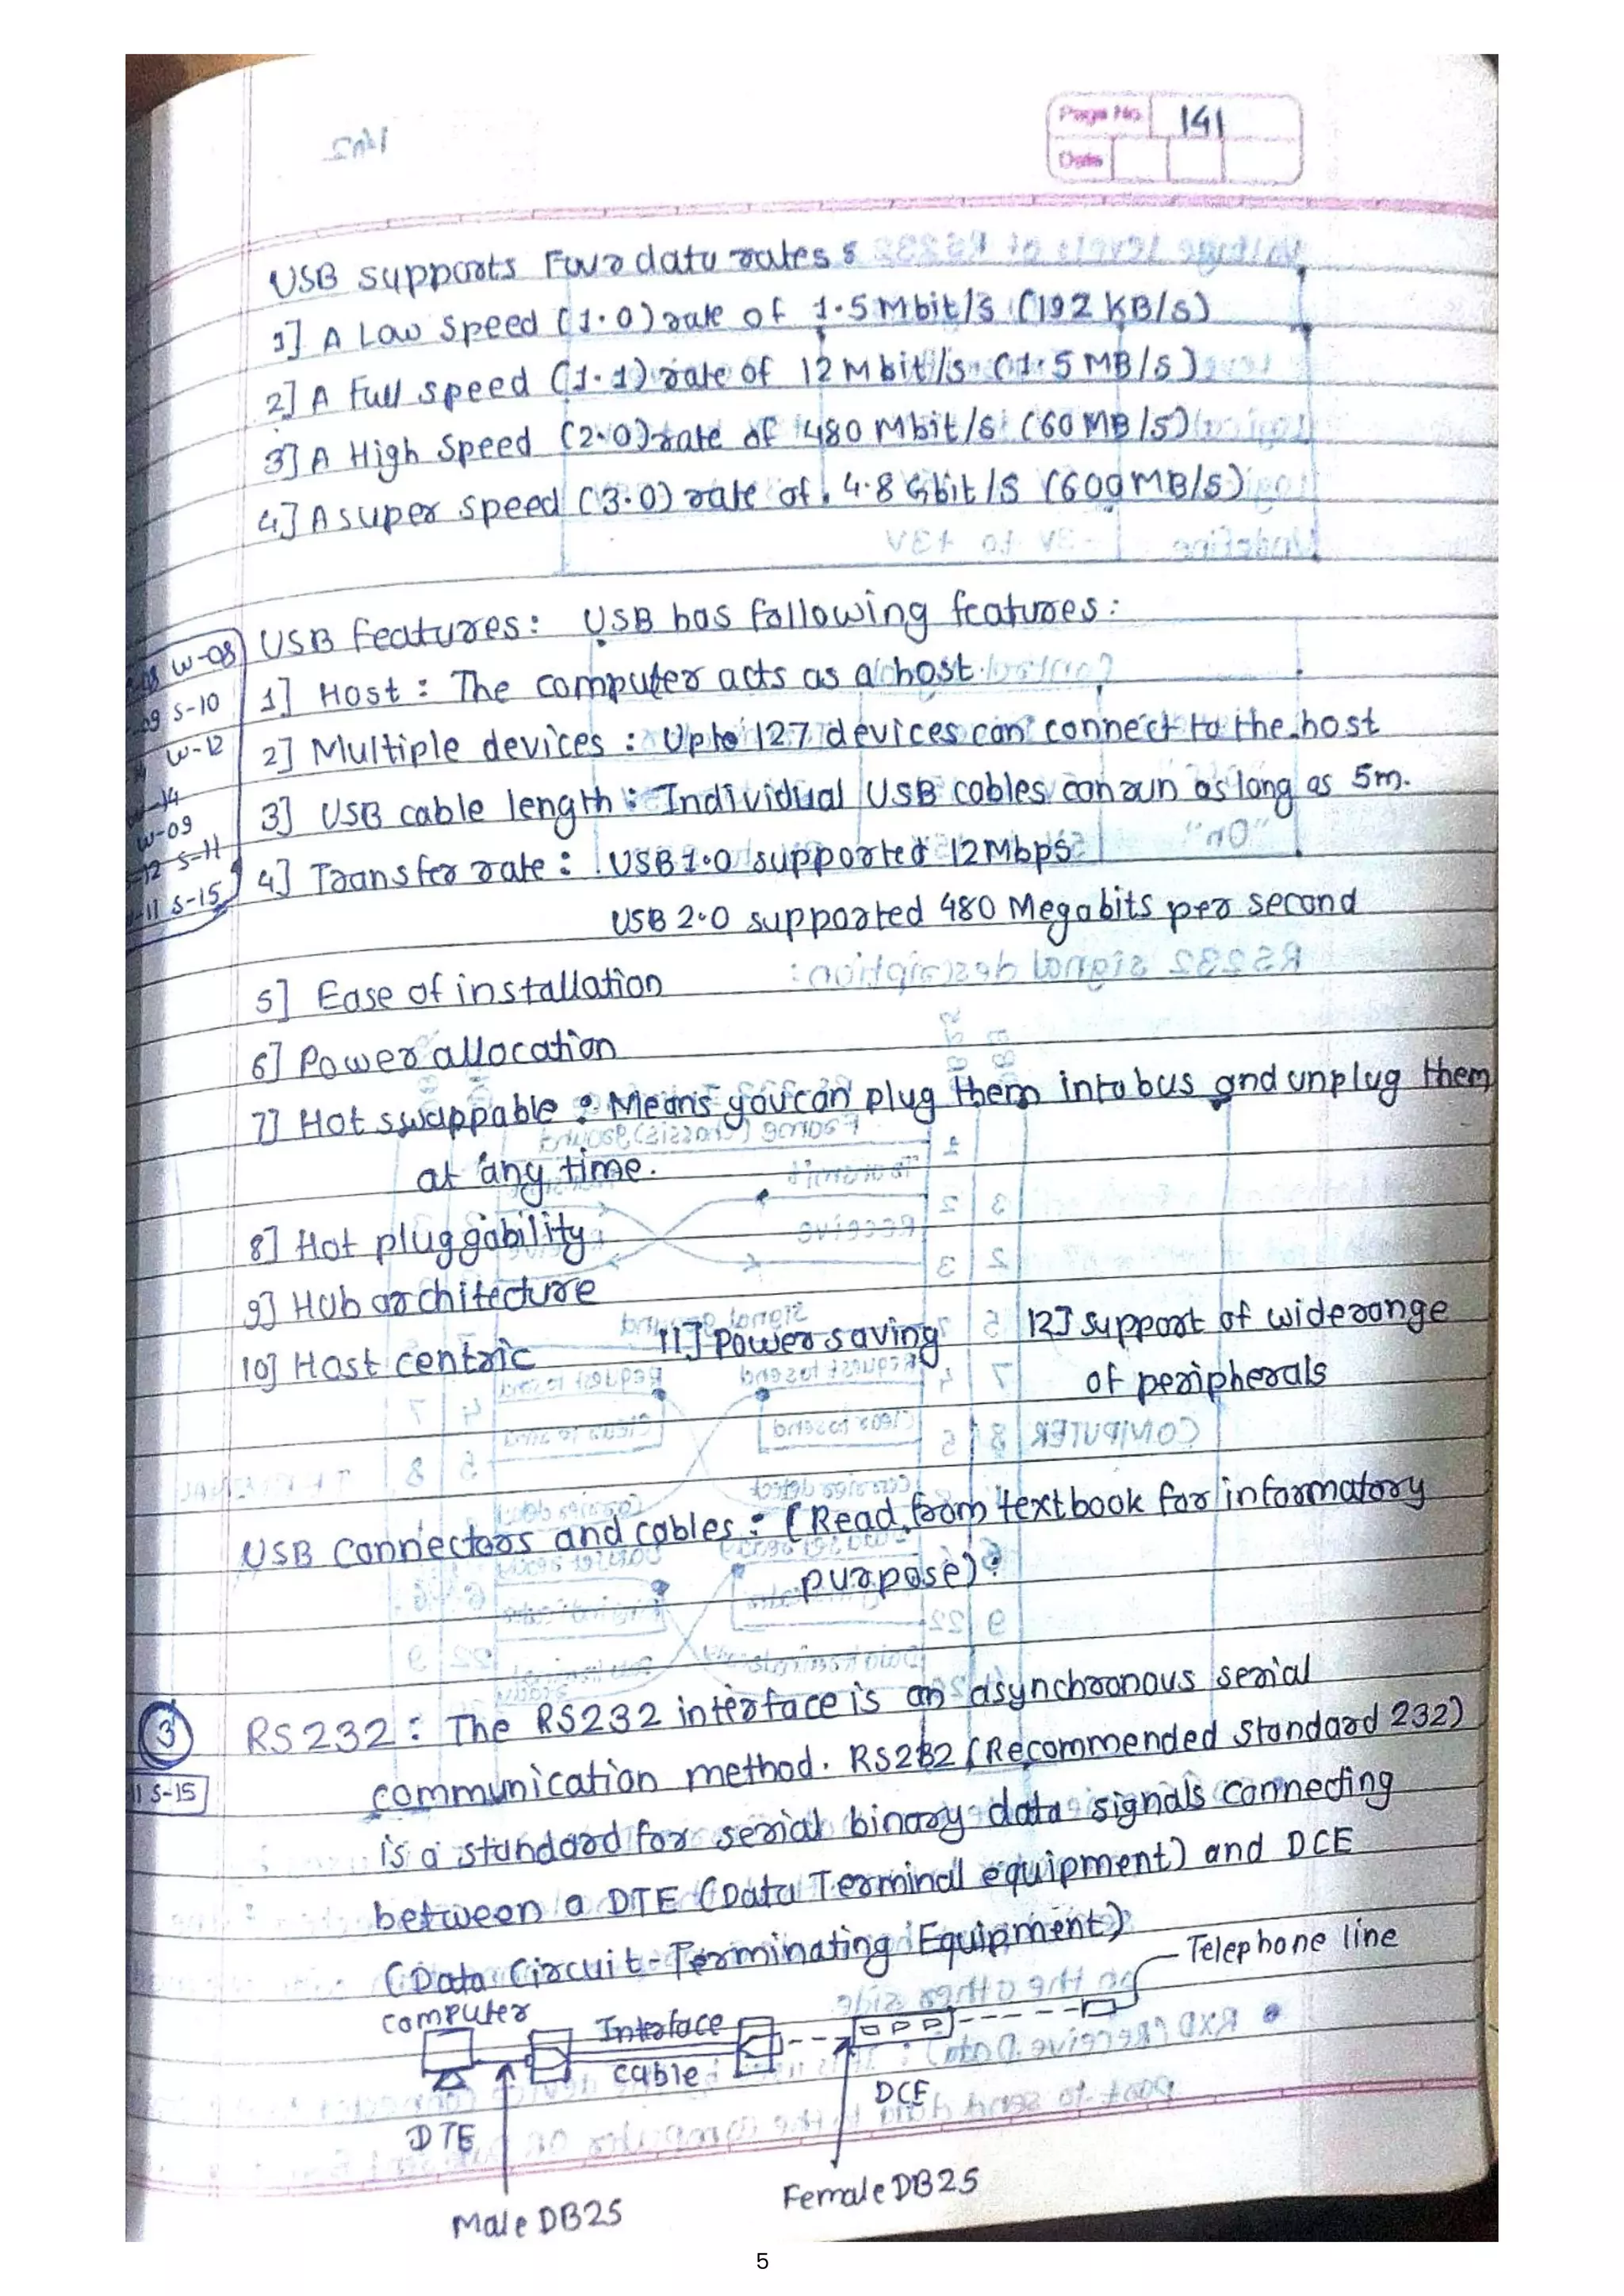 Page No. 141
Date
USB supports Four data rates :
1] A Low speed (1.0) rate of 1.5 Mbit/s (192 KB/s)
2] A Full speed (1.1) rate of 12 Mbit/s (1.5 MB/s)
3] A High Speed (2.0) rate of 480 Mbit/s (60 MB/s)
4] A super speed (3.0) rate of 4.8 Gbit/s (600 MB/s)
USB Features: USB has following features:
W-08
S-10
W-12
W-09
S-11
S-15
1] Host : The computer acts as a host.
2] Multiple devices : Upto 127 devices can connect to the host
3] USB cable length : Individual USB cables can run as long as 5m.
4] Transfer rate : USB 1.0 supported 12Mbps
USB 2.0 supported 480 Megabits per second
5] Ease of installation
6] Power allocation
7] Hot swappable : Means you can plug them into bus and unplug them
at any time.
8] Hot pluggability
9] Hub architecture
10] Host centric 11] Power saving 12] Support of wide range
of peripherals
USB Connectors and cables : (Read from textbook for informatory
purpose) :
3 RS232 : The RS232 interface is an asynchronous serial
S-15
communication method. RS232 (Recommended Standard 232)
is a standard for serial binary data signals connecting
between a DTE (Data Terminal equipment) and DCE
(Data Circuit-Terminating Equipment)
Telephone line
computer
Interface
cable
DCE
DTE
Male DB25
Female DB25
5